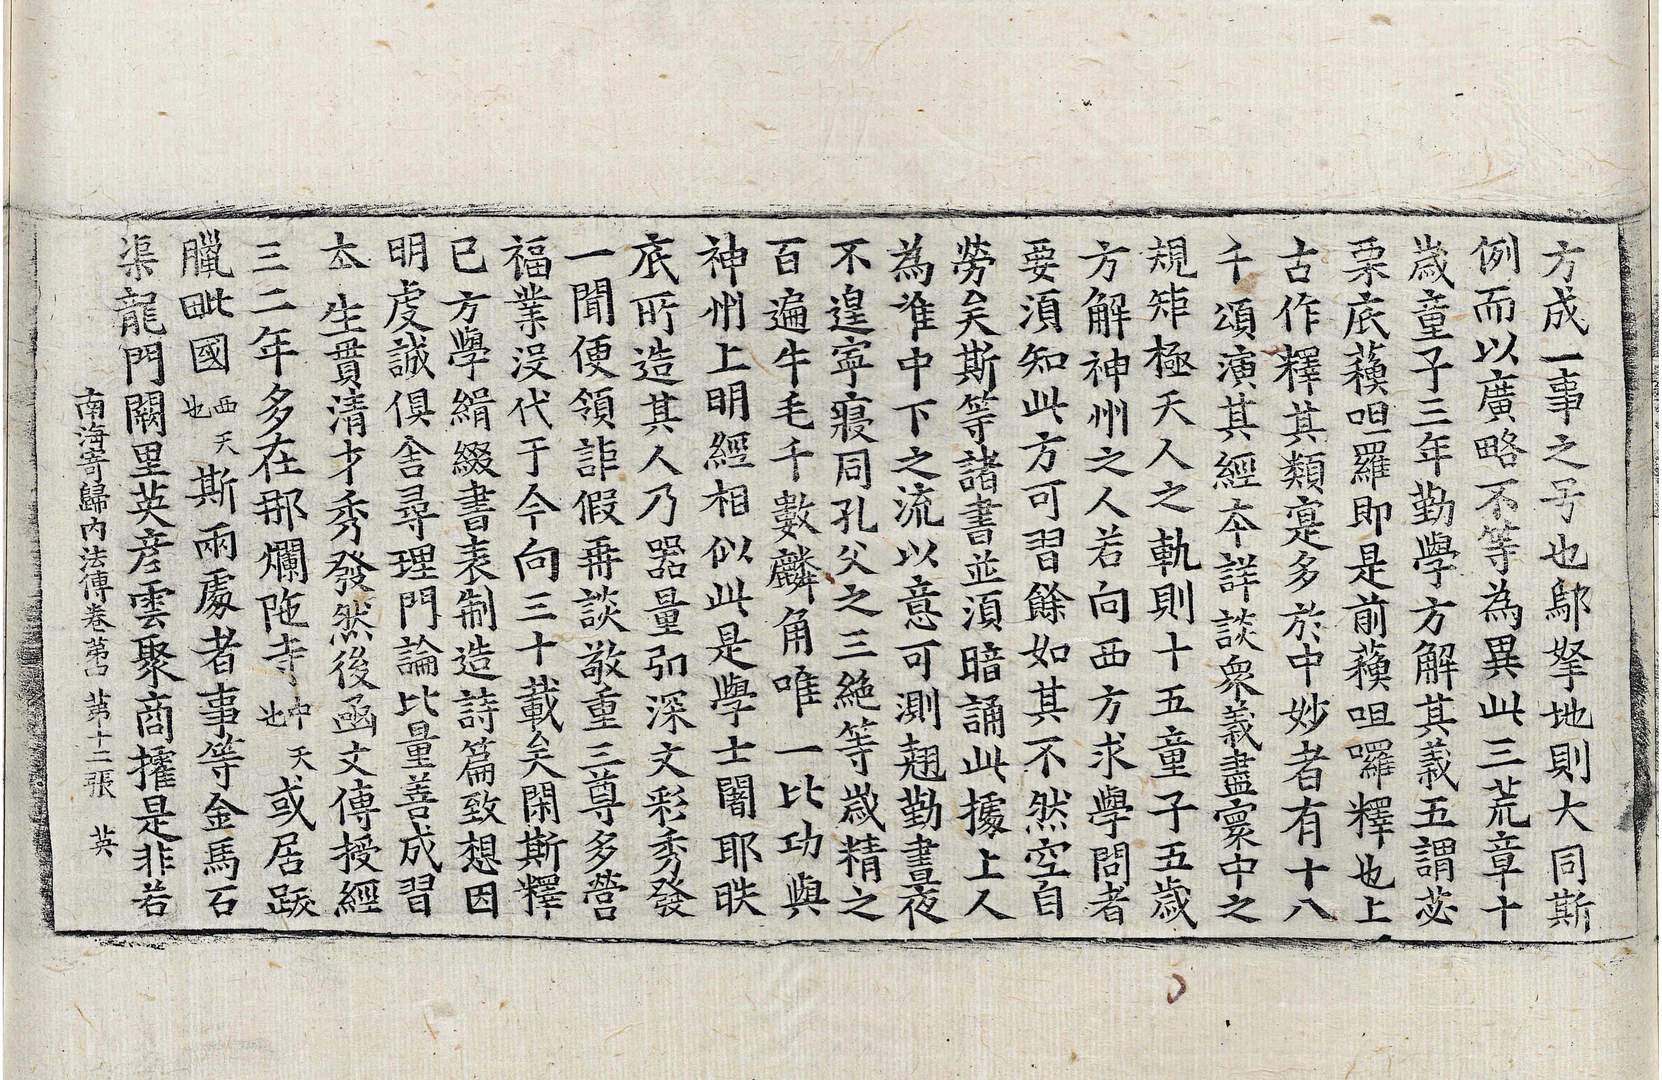 方成一事之号也鄔拏地則大同斯
例而以廣略不等為異此三荒章十
歲童子三年勤學方解其義五謂苾
栗底蘓呾羅即是前蘓呾囉釋也上
古作釋其類寔多於中妙者有十八
千頌演其經夲詳談衆義盡寰中之
規矩極天人之軌則十五童子五歲
方解神州之人若向西方求學問者
要須知此方可習餘如其不然空自
勞矣斯等諸書並須暗誦此據上人
為准中下之流以意可測翹勤晝夜
不遑寧寢同孔父之三絶等歲精之
百遍牛毛千數麟角唯一比功與
神州上明經相似此是學士闍耶昳
底所造其人乃器量弘深文彩秀發
一聞便領詎假再談敬重三尊多營
福業没代于今向三十載矣閑斯釋
已方學緝綴書表制造詩篇致想因
明虔誠俱舍尋理門論比量善成習
夲生貫清才秀發然後函文傳授經
三二年多在那爛陁寺中天也或居跋
臘毗國西天也斯兩處者事等金馬石
渠龍門闕里英彦雲聚商搉是非若
南海寄歸内法傳卷第四 第十二張 英